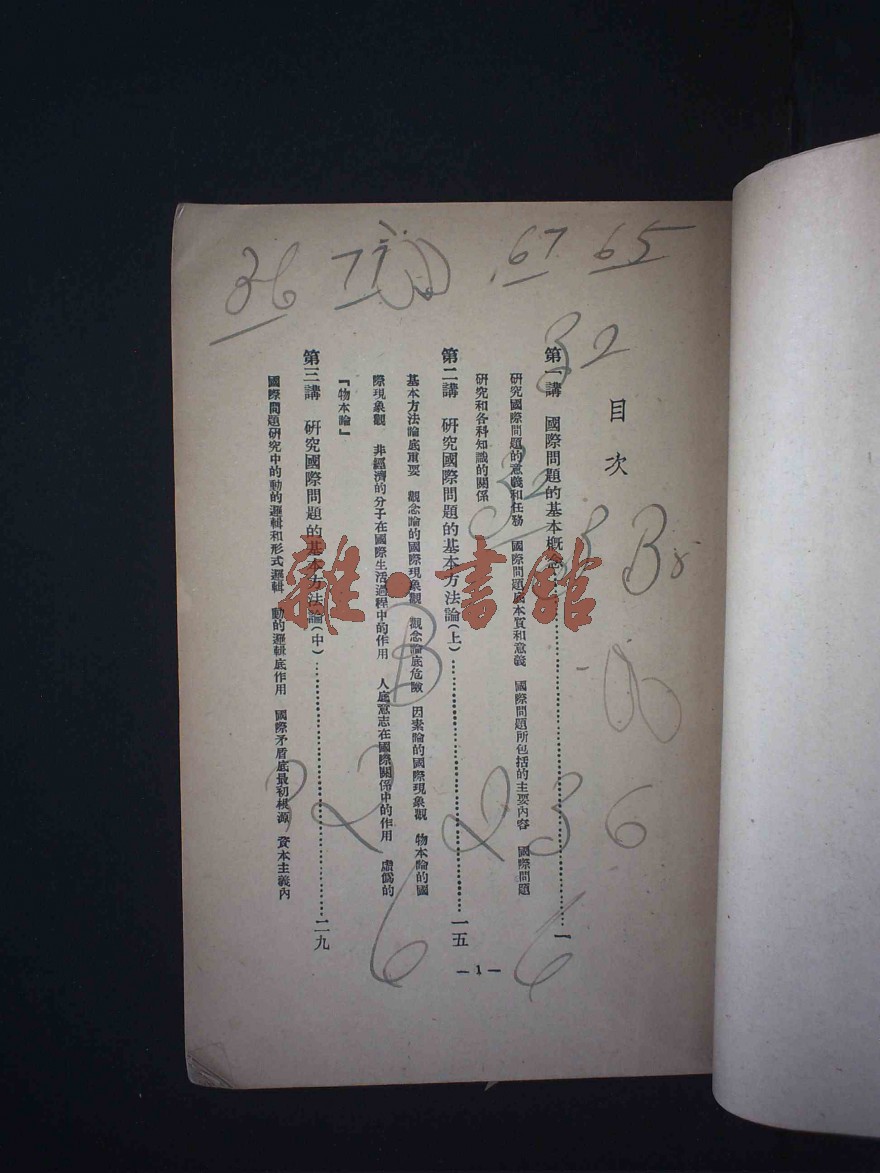 36 77 67 65
32
目次
第一講 國際問題的基本概念……………………一
研究國際問題的意義和任務 國際問題底本質和意義 國際問題所包括的主要內容 國際問題
研究和各科知識的關係
第二講 研究國際問題的基本方法論(上)……………………一五
基本方法論底重要 觀念論的國際現象觀 觀念論底危險 因素論的國際現象觀 物本論的國
際現象觀 非經濟的分子在國際生活過程中的作用 人底意志在國際關係中的作用 虛僞的
『物本論』
第三講 研究國際問題的基本方法論(中)……………………二九
國際問題研究中的動的邏輯和形式邏輯 動的邏輯底作用 國際矛盾底最初根源 資本主義內
—1—
32
B
B
6
2
2
3
6
6
雜·書館